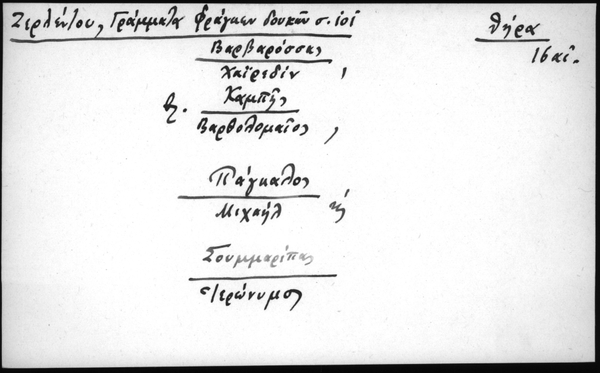 Ζερλέντου, Γράμματα Φράγκων δουκῶν σ. ιοϊ
Θήρα
16 αἰ.
Βαρβαρόσσας
Χαϊρεδίν,
Β. Καμπῆς
Βαρθολομαῖος,
Πάγκαλος
Μιχαήλ κ
Σουμμαρίπας
Ἱερώνυμος